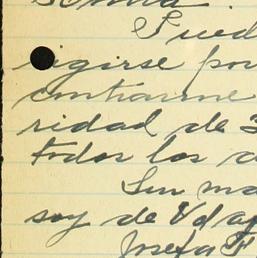 Pued
rigirse por
contrarme
ridad de 3
todos los d
Sin ma
soy de Vd a
Josefa F